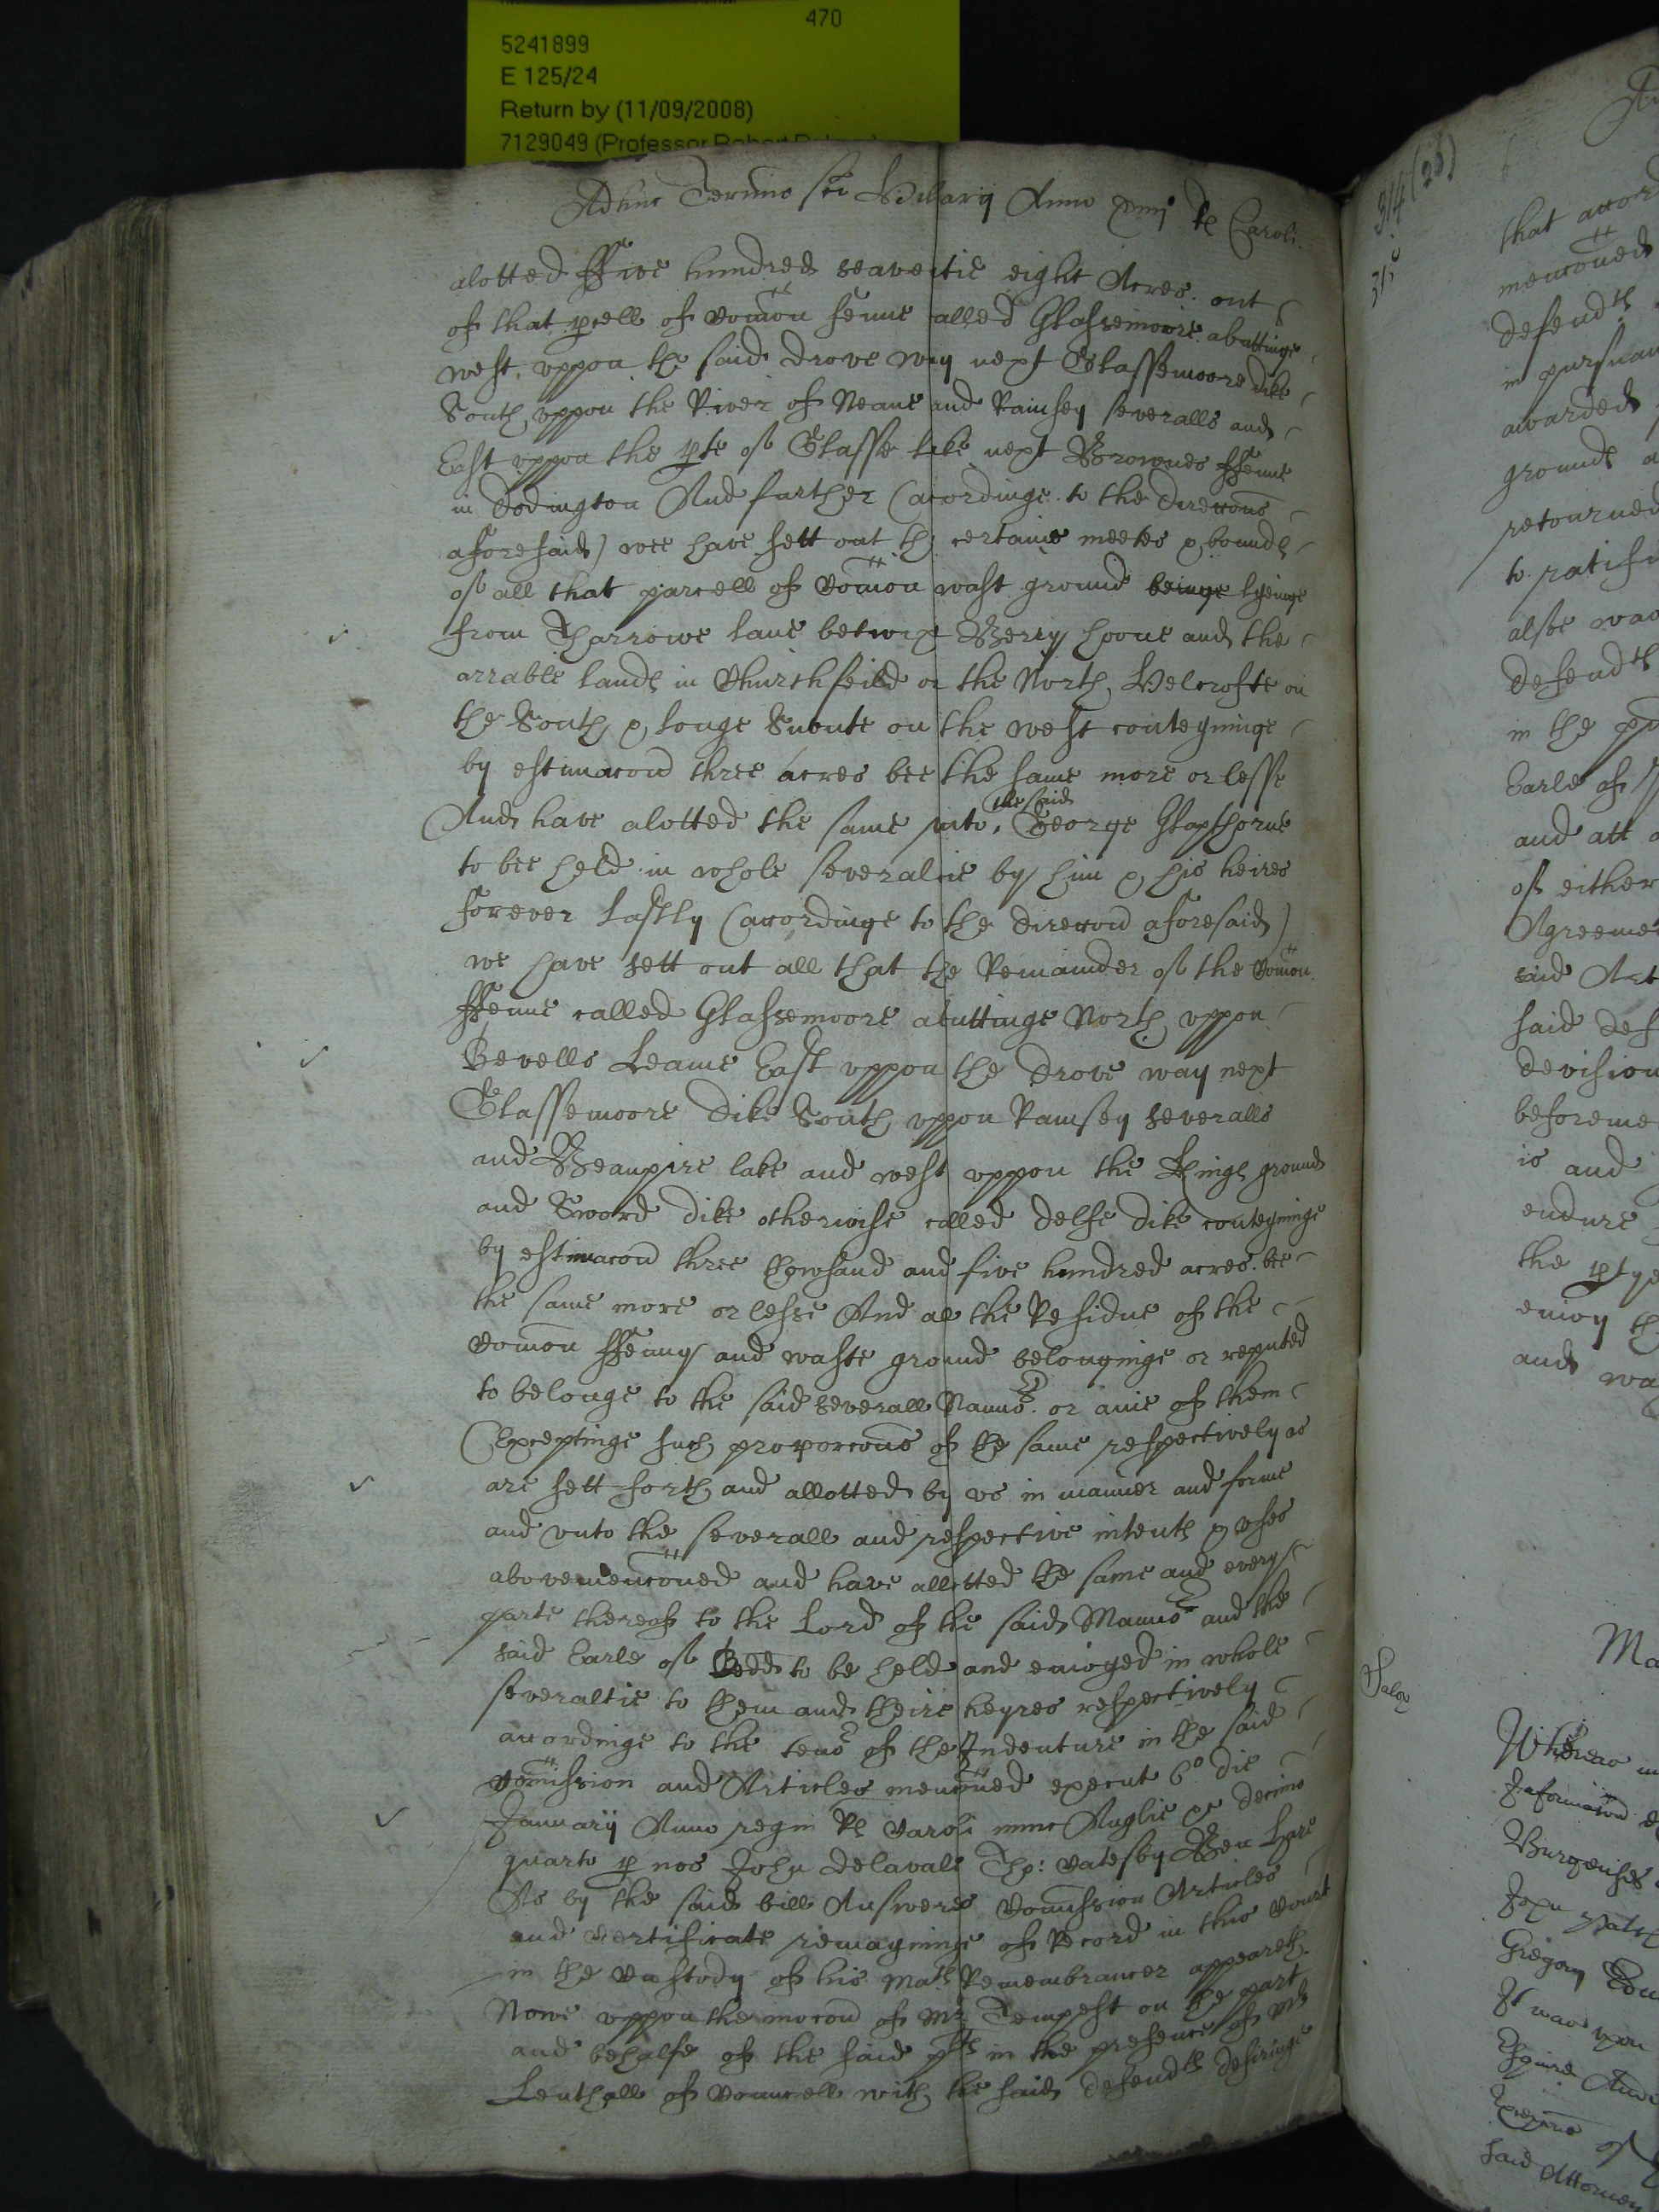 470
5241899
E 125/24
Return by (11/09/2008)
7129049 (Professor Robert
Adhuc Termino sci Hillarij Anno xiiij R Caroli
alotted ffive hundred seaventie eight Acres out
of that pcell of Comon fenne called Glassemoore abuttinge
west uppon the said drove way next Glassemoore dike
South uppon the River of Neane and Ramsey severalls and
East uppon the pte of Glasse lake next Brownes ffenne
in Dodington And further (acordinge to the direccons
aforesaid) wee have sett out the certaine meetes & bounds
of all that parcell of Comon wast ground beinge lyeinge
from Tharrowe lane betwixt Berry hoone and the
arrable lands in Churchfeild on the North, Welcrofte on
the South & longe Snoute on the west conteyninge
by estimacon three acres bee the same more or lesse
And have alotted the same unto the said George Glapthorne
to bee held in whole severaltie by him & his heires
forever Lastly (acordinge to the direccon aforesaid)
we have sett out all that the Remainder of the Comon
ffenne called Glassemoore abuttinge North uppon
Bevells Leame East uppon the drove way next
Glassemoore dike South uppon Ramsey severalls
and Beaupire lake and west uppon the Kings ground
and Sword dike otherwise called delfe dike conteyninge
by estimacon three thowsand and five hundred acres bee
the same more or lesse And al the Residue of the
Comon ffenny and waste ground belonginge or reputed
to belonge to the said severall Mannors or anie of them
(Exceptinge such proporcons of the same respectively as
are sett forth and allotted by us in manner and forme
and unto the severall and respective intents & uses
abovemenconed and have allotted the same and every
parte thereof to the Lord of the said Mannors and the
said Earle of Bedd to be held and enioyed in whole
severaltie to them and theire heyres respectively
accordinge to the tenor of the Indenture in the said
Comission and Articles menconed execut 6o die
Januarij Anno regni R Caroli nunc Anglie &c decimo
quarto p nos John Delavale Tho: Catesby Ben Hare
As by the said bill Answere Comission Articles
and Certificate remayninge of Record in this Court
in the Custody of his Mats Remembrancer appeareth
Nowe uppon the mocon of Mr Tempest on the part
and behalfe of the said plts in the presence of Mr
Lenthall of Councell with the said defendts desiringe
314 (26)
315
that accord
menconed
defendts
in pursuan
awarded
grounds a
retourned
to ratifi
alsoe was
defendts
in the
Earle of
and att a
of either
Agreemet
said Art
said def
devision
beforeme
is and
endure
the ptye
enioy th
and wa
Ma
Salop
Whereas in
Informacon
Burgenses
Gregory
It was upon
Esquire
said Attorney